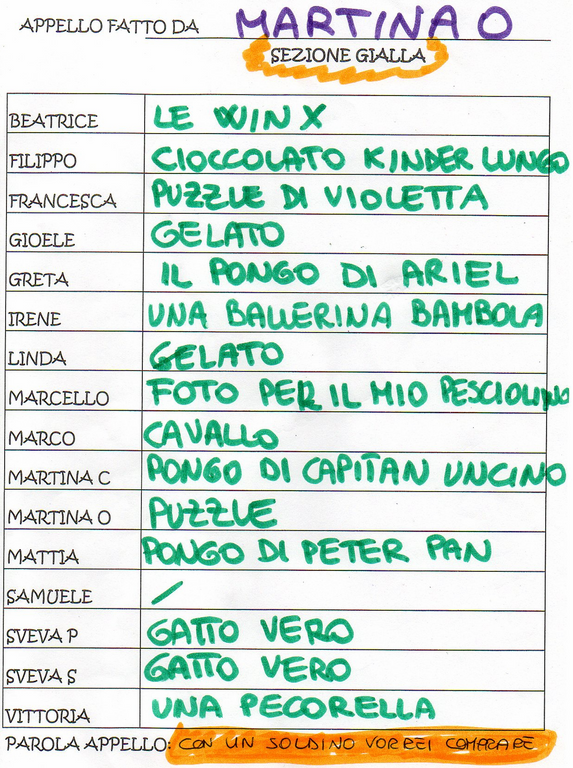 APPELLO FATTO DA MARTINA O
SEZIONE GIALLA
BEATRICE LE WINX
FILIPPO CIOCCOLATO KINDER LUNGO
FRANCESCA PUZZLE DI VIOLETTA
GIOELE GELATO
GRETA IL PONGO DI ARIEL
IRENE UNA BALLERINA BAMBOLA
LINDA GELATO
MARCELLO FOTO PER IL MIO PESCIOLINO
MARCO CAVALLO
MARTINA C PONGO DI CAPITAN UNCINO
MARTINA O PUZZLE
MATTIA PONGO DI PETER PAN
SAMUELE /
SVEVA P GATTO VERO
SVEVA S GATTO VERO
VITTORIA UNA PECORELLA
PAROLA APPELLO: CON UN SOLDINO VORREI COMPRARE